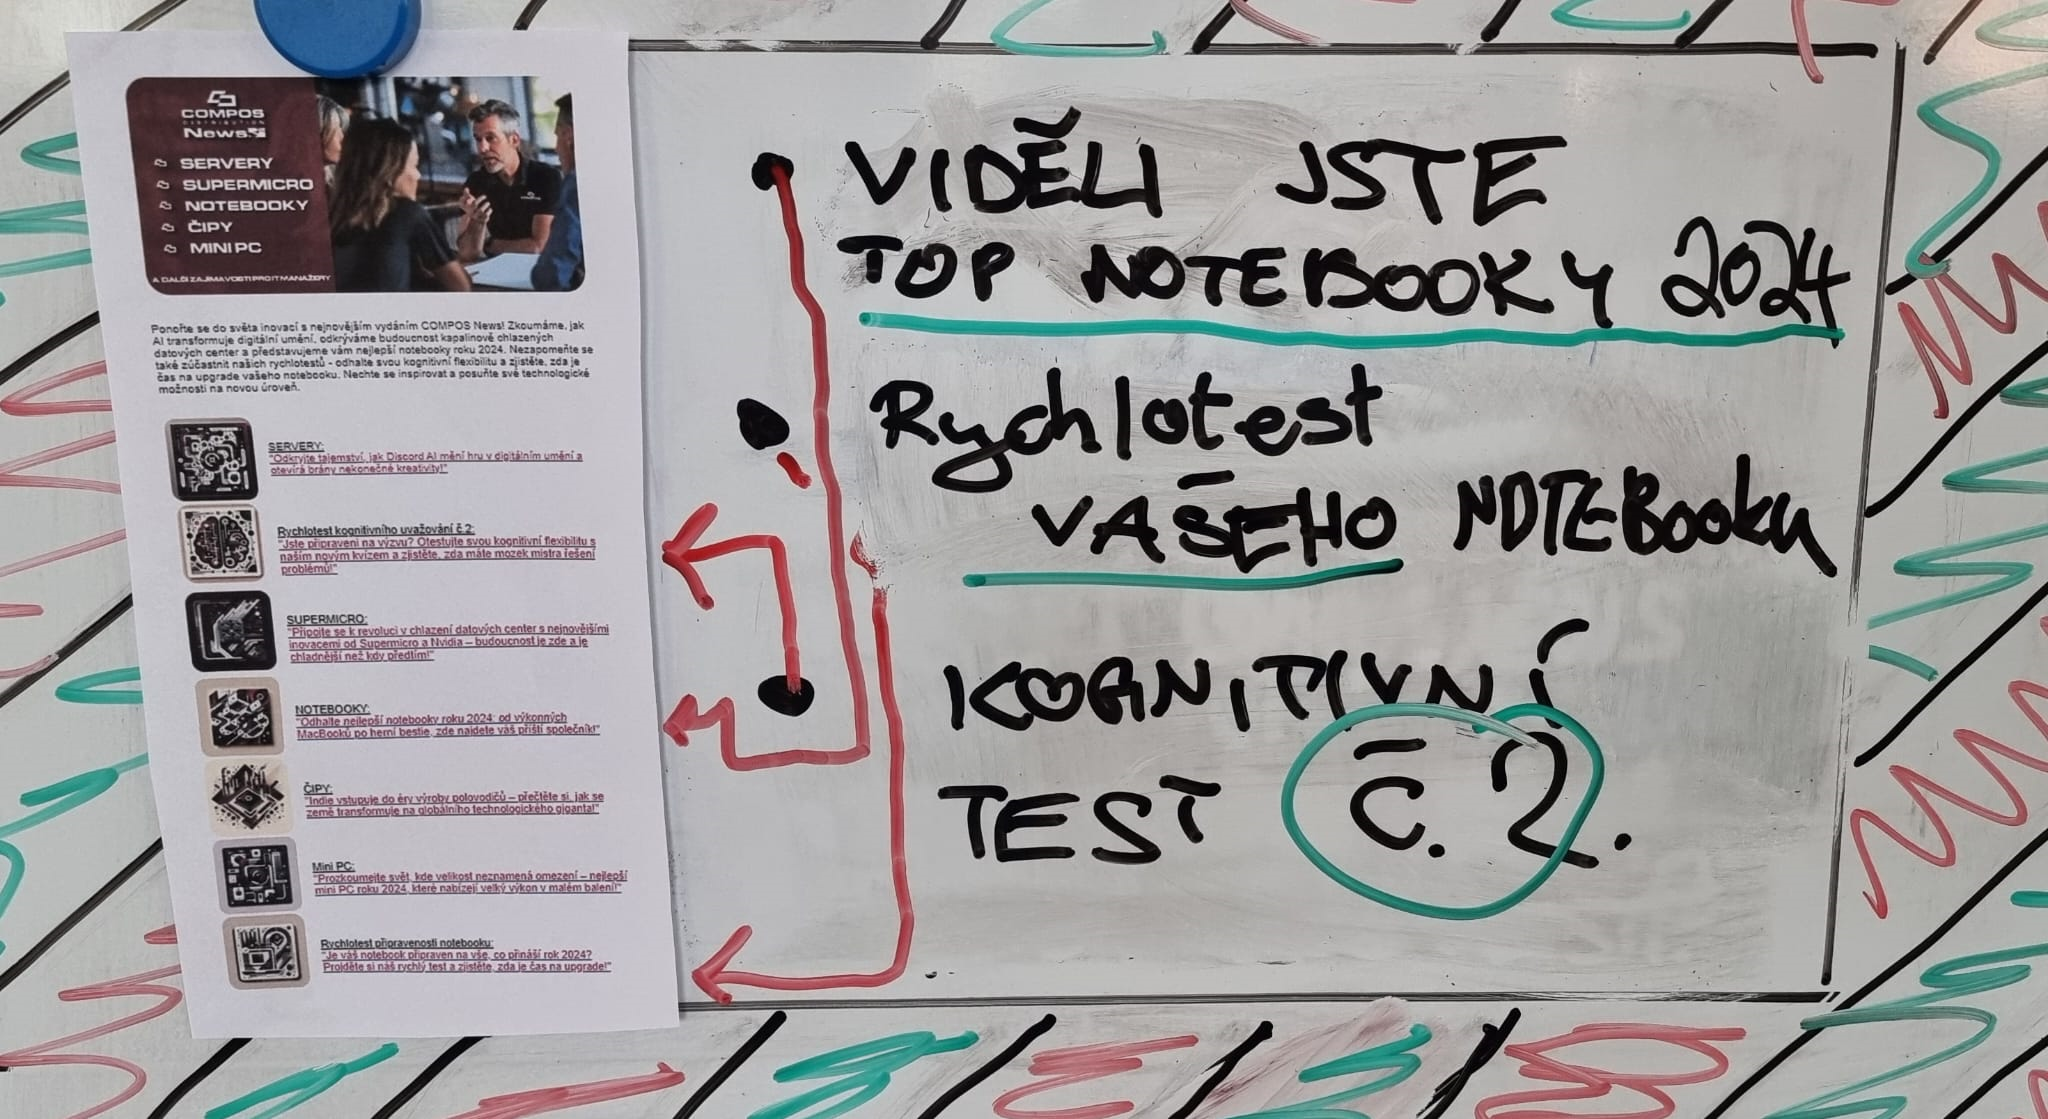 COMPOS
DISTRIBUTION
News
SERVERY
SUPERMICRO
NOTEBOOKY
ČIPY
MINI PC
A DALŠÍ ZAJÍMAVOSTI PRO IT MANAŽERY
Ponořte se do světa inovací s nejnovějším vydáním COMPOS News! Zkoumáme, jak
AI transformuje digitální umění, odkrýváme budoucnost kapalinově chlazených
datových center a představujeme vám nejlepší notebooky roku 2024. Nezapomeňte se
také zúčastnit našich rychlotestů - odhalte svou kognitivní flexibilitu a zjistěte, zda je
čas na upgrade vašeho notebooku. Nechte se inspirovat a posuňte své technologické
možnosti na novou úroveň.
SERVERY:
"Odkryjte tajemství, jak Discord AI mění hru v digitálním umění a
otevírá brány nekonečné kreativity!"
Rychlotest kognitivního uvažování č 2:
"Jste připraveni na výzvu? Otestujte svou kognitivní flexibilitu s
naším novým kvízem a zjistěte, zda máte mozek mistra řešení
problémů!"
SUPERMICRO:
"Připojte se k revoluci v chlazení datových center s nejnovějšími
inovacemi od Supermicro a Nvidia – budoucnost je zde a je
chladnější než kdy předtím!"
NOTEBOOKY:
"Odhalte nejlepší notebooky roku 2024: od výkonných
MacBooků po herní bestie, zde najdete váš příští společník!"
ČIPY:
"Indie vstupuje do éry výroby polovodičů – přečtěte si, jak se
země transformuje na globálního technologického giganta!"
Mini PC:
"Prozkoumejte svět, kde velikost neznamená omezení – nejlepší
mini PC roku 2024, které nabízejí velký výkon v malém balení!"
Rychlotest připravenosti notebooku:
"Je váš notebook připraven na vše, co přináší rok 2024?
Projděte si náš rychlý test a zjistěte, zda je čas na upgrade!"
VIDĚLI JSTE
TOP NOTEBOOKY 2024
Rychlotest
VAŠEHO NOTEBooku
KOGNITIVNÍ
TEST č. 2.